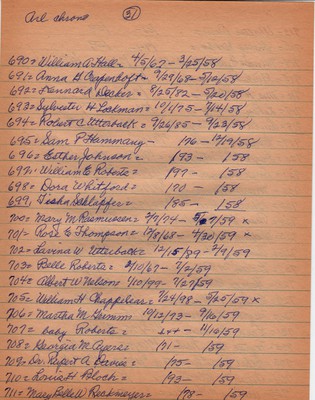 Arl chrono
31
690 = William A. Hall = 4/5/67 - 3/25/58
691 = Anna G. 9/29/68 - 5/12/58
692 = Lennard Decker = 8/25/82 - 5/20/58
693 = Sylvester H. Lockman = 10/1/75 - 7/14/58
694 = Robert C. Utterback = 9/26/85 - 9/23/58
695 = Sam P. Hammany - 176 - 12/19/58
696 = Esther Johnson = 193 - 158
697 = William E. Roberts = 197 - 158
698 = Dora Whitford = 170 - 158
699 = Tisha Schlapfer = 185 - 158
700 = Mary M. Rasmussen = 2/7/74 - /59 x
701 = Rose E. Thompson = 12/8/68 - 4/30/59 x
702 = Lavina W. Utterback = 12/15/89 - 2/9/59
703 = Belle Roberts = 2/10/67 - 7/2/59
704 = Albert W. Nelson = 4/10/99 - 7/27/59
705 = William H. Chappelear = 2/24/98 - 9/25/59 x
706 = Martha M. Grimm = 10/12/93 - 9/16/59
707 = baby Roberts = - 11/10/59
708 = Georgia M. Ayers = 171 - /59
709 = Dr. Rupert A. 175 - /59
710 = Lovie H. Bloch = 193 - /59
711 = Mary Belle W. 178 - /59